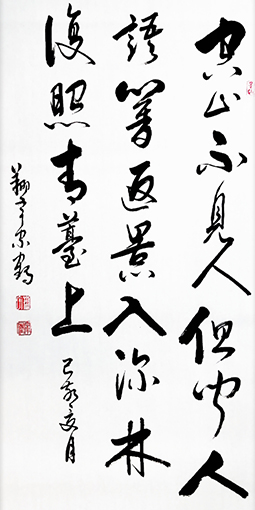 空山不見人但聞人
語響返景入深林
復照青薹上
己亥夏月